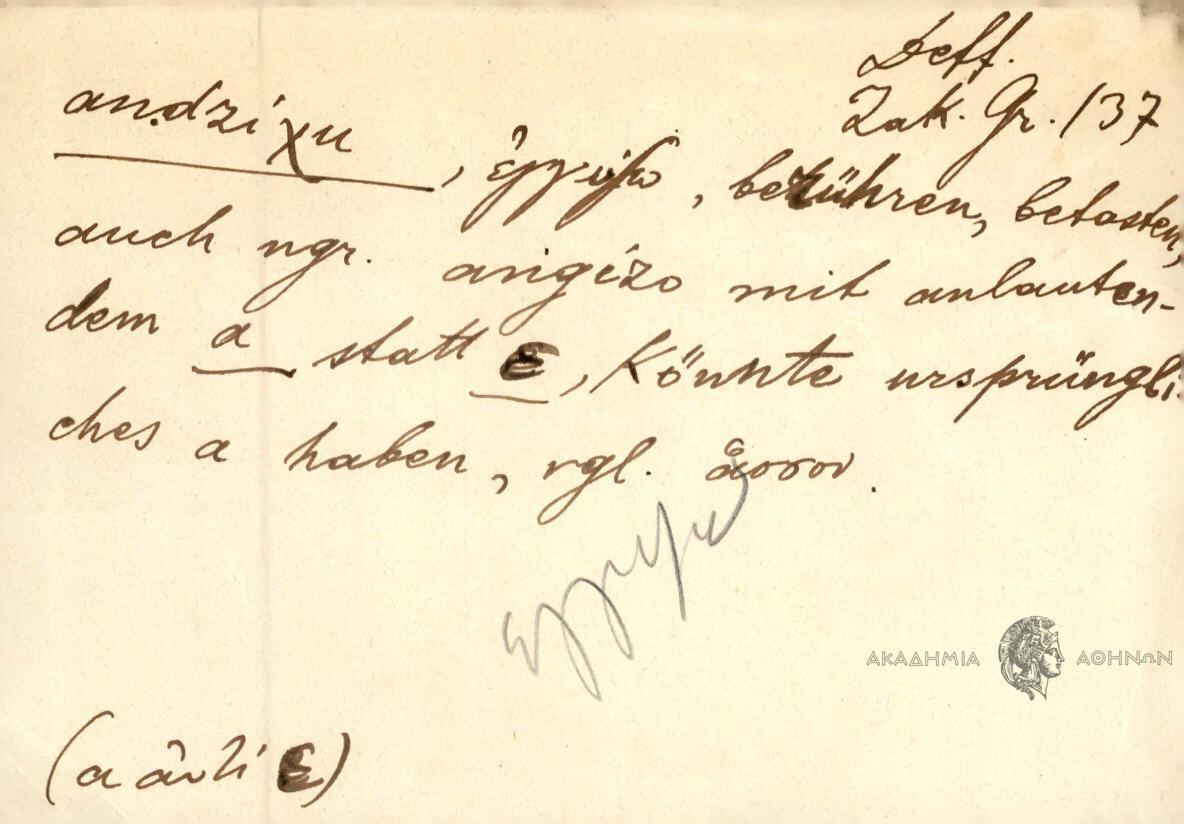 Deff.
Zak. Gr. 137
andziχu, ἐγγίζω, berühren, betasten,
auch ngr. angízo mit anlauten-
dem a statt ε, könnte ursprüngli-
ches a haben, vgl. ἆσσον.
ἐγγίζω
ΑΚΑΔΗΜΙΑ ΑΘΗΝΩΝ
(a ἀντί ε)